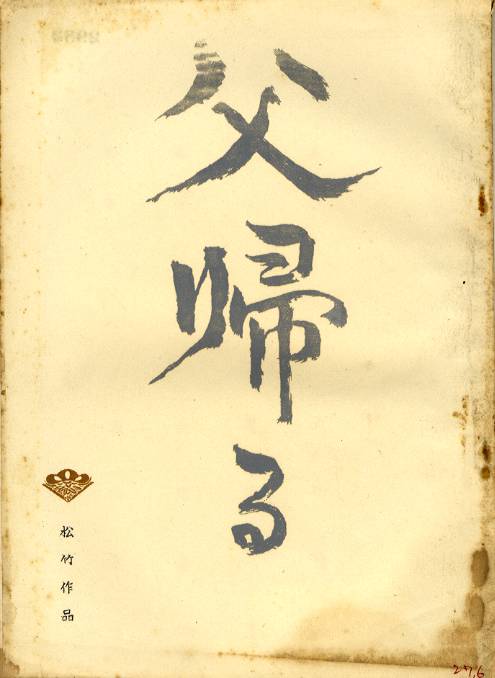 父帰る
松竹作品
27.6